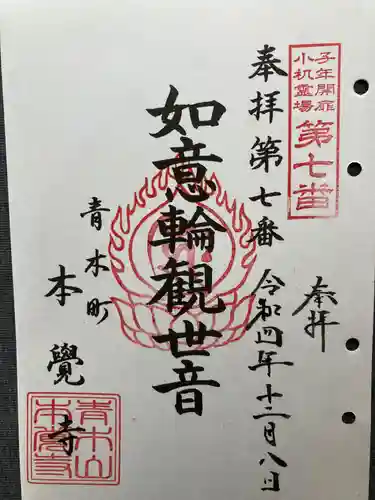 子年開扉
小机霊場
第七番
奉拝
奉拝第七番
令和四年十二月八日
如意輪観世音
青木町
本覺寺
青木山
本覚寺